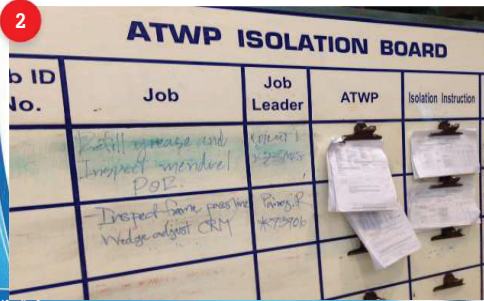 2
ATWP ISOLATION BOARD
b ID
No.
Job
Job
Leader
ATWP
Isolation Instruction
Refill grease and
Inspect mendrel
POR.
- Inspect frame pass line
Wedge adjust CRM